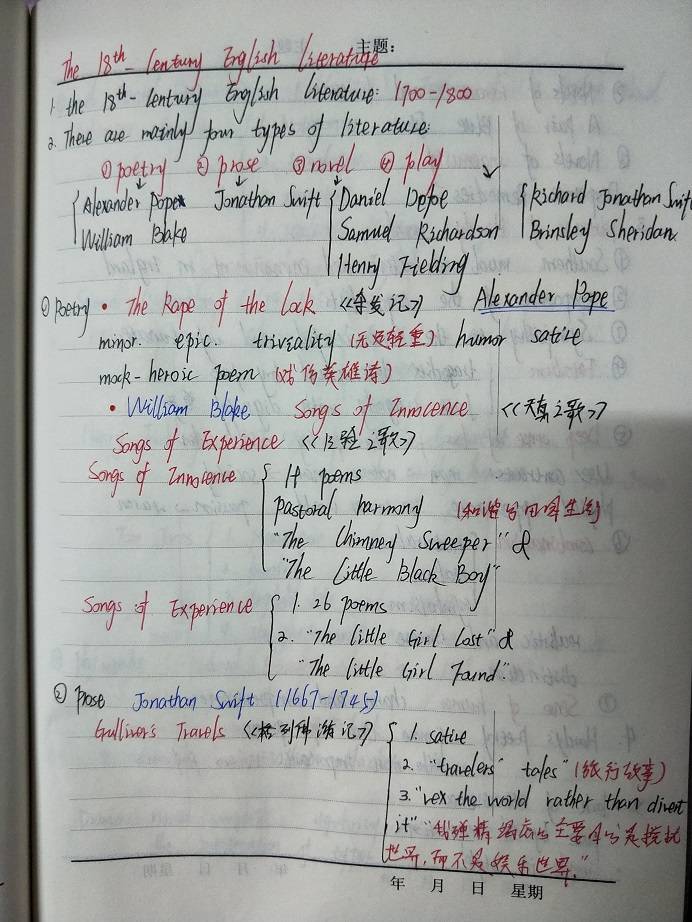 主题:
The 18th-Century English Literature
1. the 18th-Century English Literature: 1700-1800
2. There are mainly four types of literature:
①poetry ②prose ③novel ④play
Alexander Pope Jonathan Swift Daniel Defoe Richard Jonathan Swift
William Blake Samuel Richardson Brinsley Sheridan
Henry Fielding
①Poetry • The Rape of the Lock 《夺发记》 Alexander Pope
minor. epic. triveality (无足轻重) humor satire
mock-heroic poem (戏仿英雄诗)
• William Blake Songs of Innocence 《天真之歌》
Songs of Experience 《经验之歌》
Songs of Innocence 14 poems
pastoral harmony (和谐的田园生活)
"The Chimney Sweeper" &
"The Little Black Boy"
Songs of Experience 1. 26 poems
2. "The little Girl Lost" &
"The little Girl Found".
② prose Jonathan Swift (1667-1745)
Gulliver's Travels 《格列佛游记》 1. satire
2. "travelers' tales" (旅行故事)
3. "vex the world rather than divert
it" "我殚精竭虑的主要目的是搅扰
世界,而不是娱乐世界."
年 月 日 星期